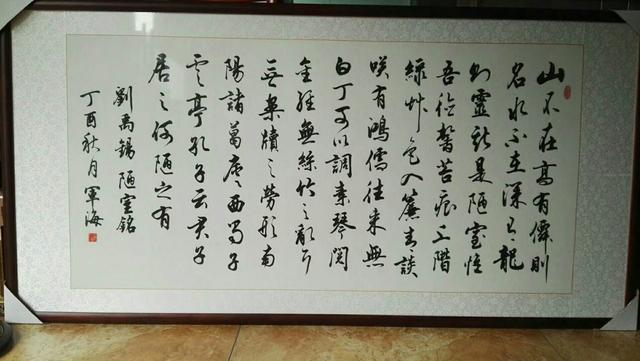 山不在高有僊則
名水不在深有龍
則靈斯是陋室惟
吾德馨苔痕上階
綠艸色入簾青談
咲有鴻儒往來無
白丁可以調素琴閱
金經無絲竹之亂耳
無案牘之勞形南
陽諸葛廬西蜀子
雲亭孔子云君子
居之何陋之有
劉禹錫陋室銘
丁酉秋月軍海